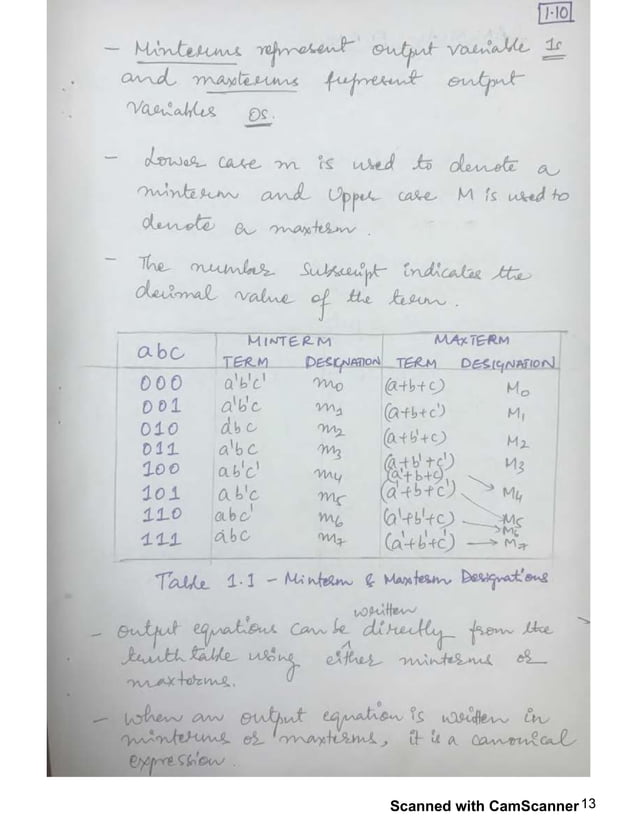 1.10
- Minterms represent output variable 1s
and maxterms represent output
variables 0s.
- Lower case m is used to denote a
minterm and Upper case M is used to
denote a maxterm.
- The number subscript indicates the
decimal value of the term.
abc MINTERM MAXTERM
TERM DESIGNATION TERM DESIGNATION
000 a'b'c' m0 (a+b+c) M0
001 a'b'c m1 (a+b+c') M1
010 a'bc m2 (a+b'+c) M2
011 a'bc m3 (a+b'+c') M3
100 ab'c' m4 (a'+b+c) M4
101 ab'c m5 (a'+b+c') M5
110 abc' m6 (a'+b'+c) M6
111 abc m7 (a'+b'+c') M7
Table 1.1 - Minterm & Maxterm Designations
- output equations can be written directly from the
truth table using either minterms or
maxterms.
- when an output equation is written in
minterms or maxterms, it is a canonical
expression.
Scanned with CamScanner 13